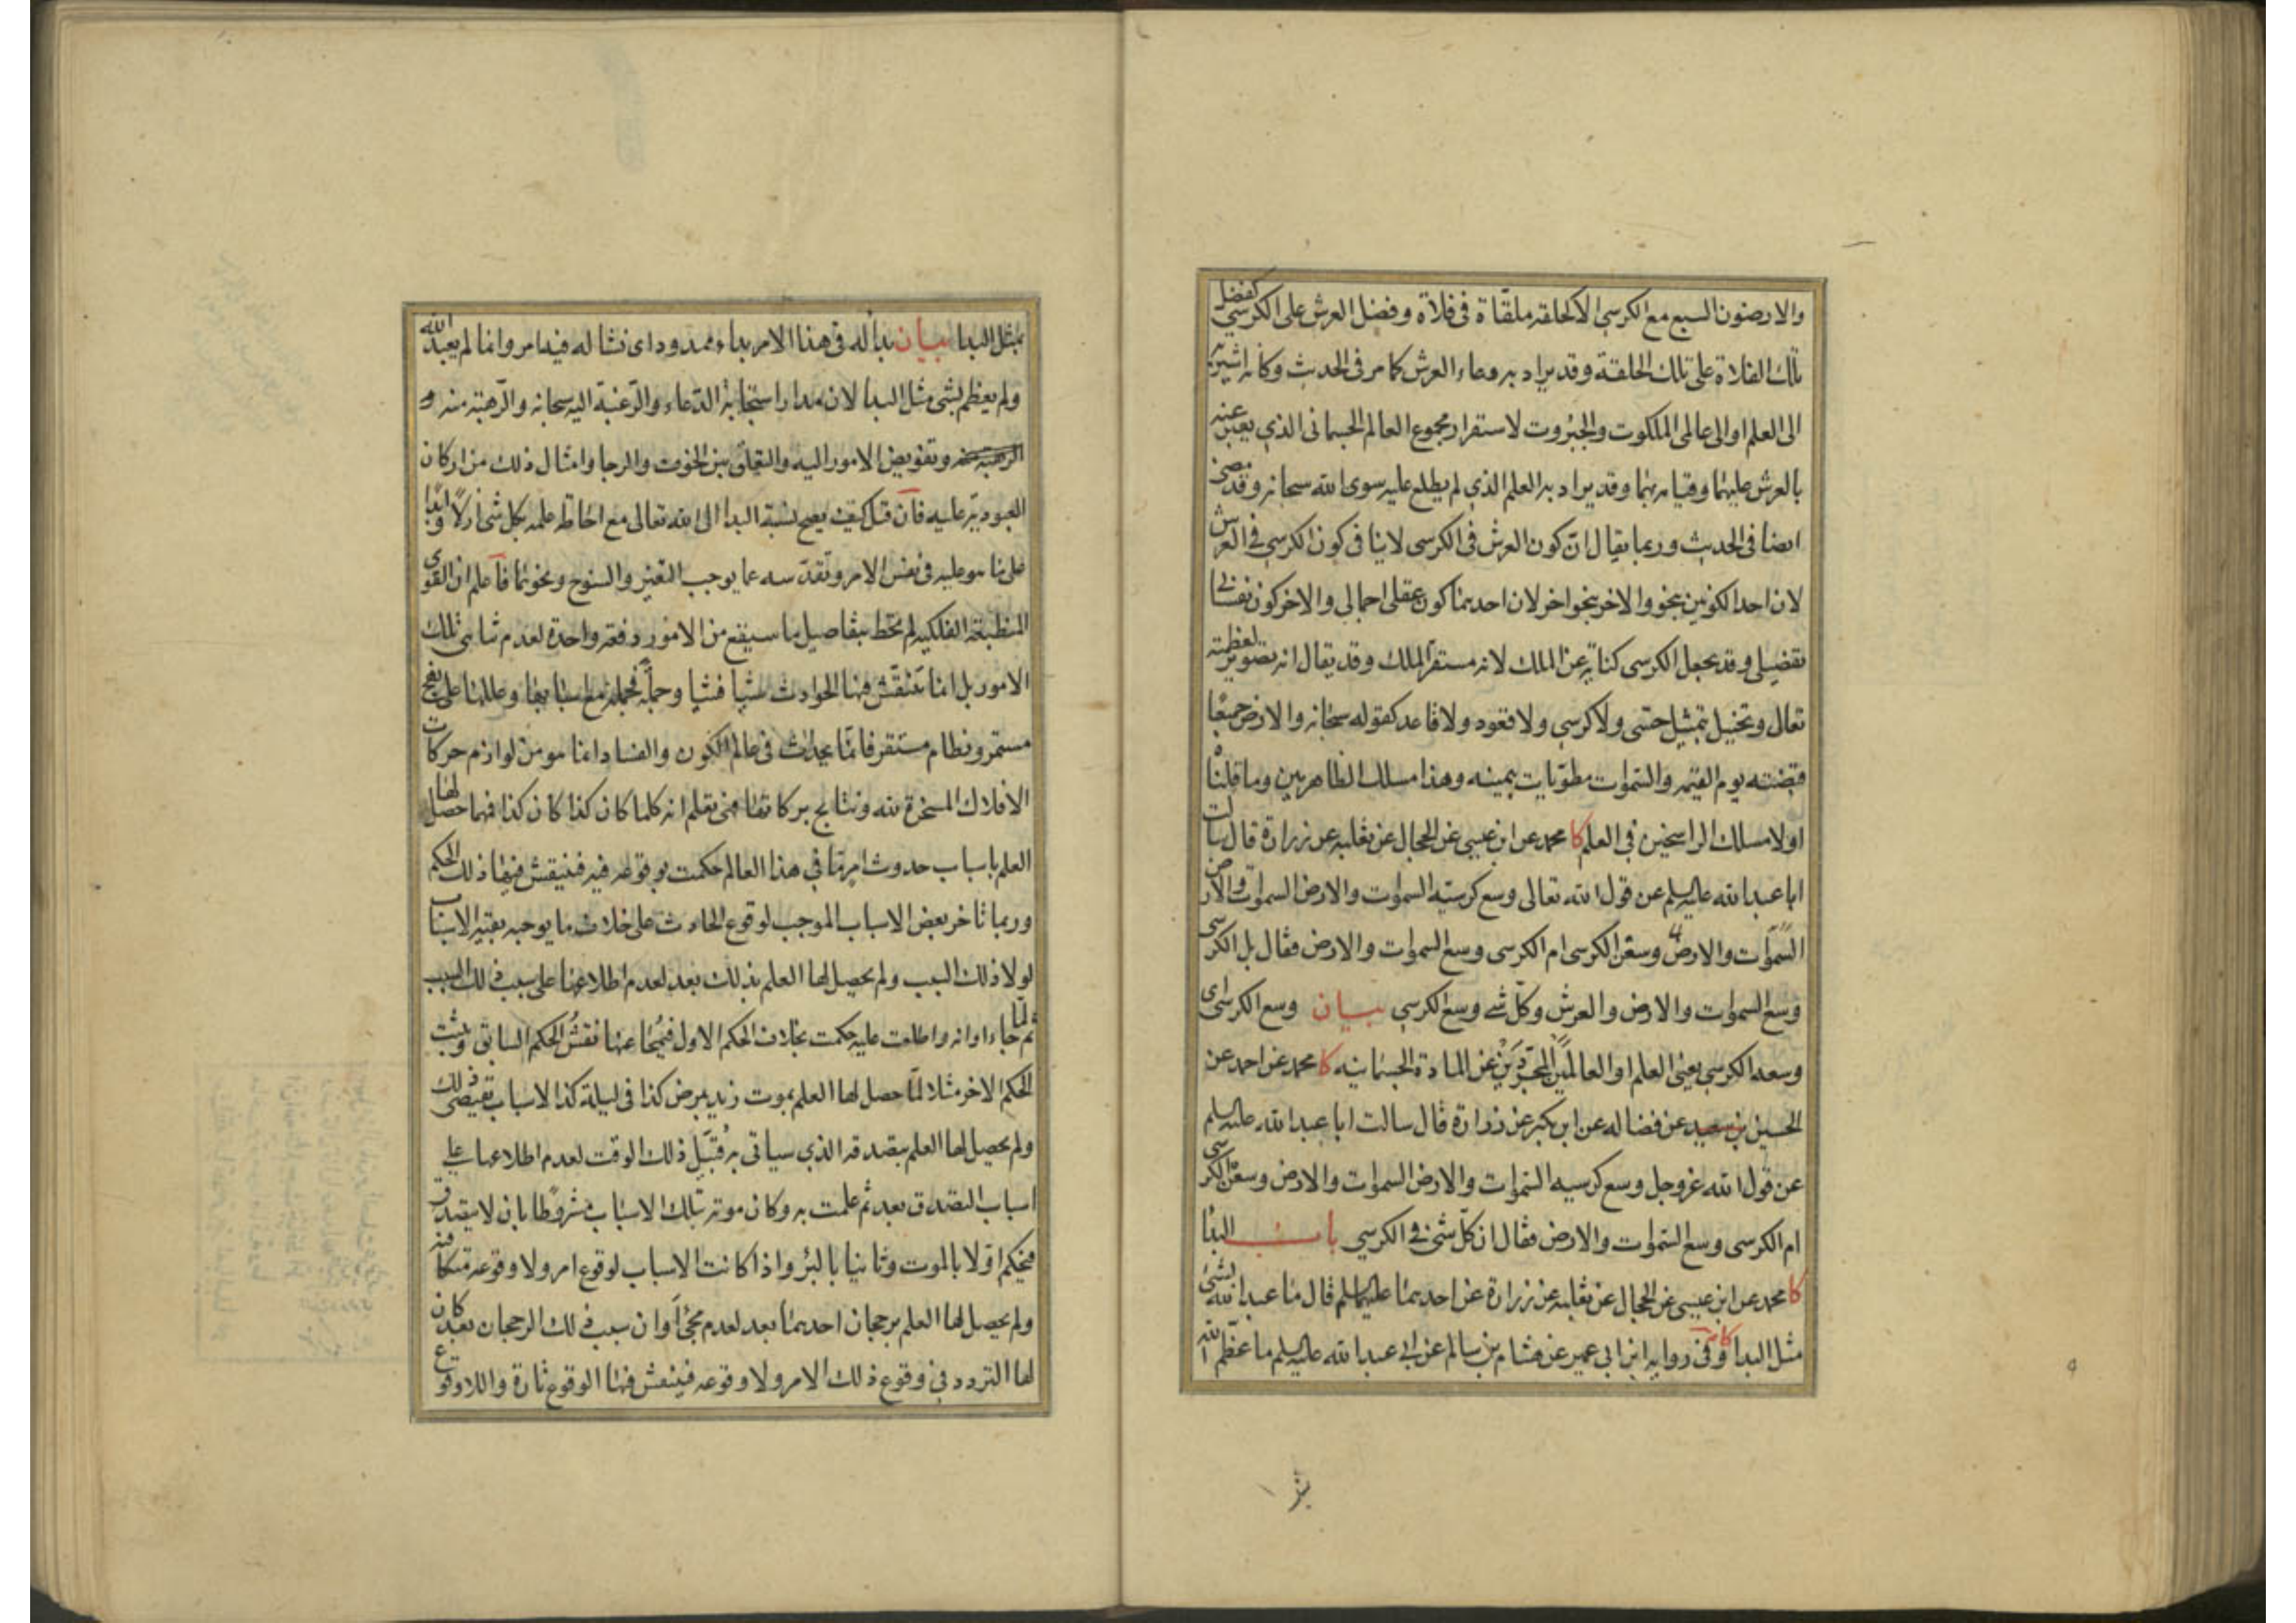 والارضون السبع مع الكرسي الا كحلقة ملقاة في فلاة وفضل العرش على الكرسي كفضل
تلك الفلاة على تلك الحلقة وقد يراد به وعاء العرش كما مر في الحديث وكانه اشير به
الى العلم او الى عالمى الملكوت والجبروت لاستقرار مجموع العالم الجسمانى الذي يعبر عنه
بالعرش عليهما وقيامه بهما وقد يراد به العلم الذي لم يطلع عليه سوى الله سبحانه وقد مضى
ايضا في الحديث وربما يقال ان كون العرش في الكرسى لا ينافي كون الكرسي في العرش
لان احد الكونين بنحو والاخر بنحو اخر لان احدهما كون عقلى اجمالى والاخر كون نفسانى
تفصيلى وقد يجعل الكرسى كناية عن الملك لانه مستقر الملك وقد يقال انه تصوير لعظمته
تعالى وتخييل بتمثيل حسى ولا كرسي ولا قعود ولا قاعد كقوله سبحانه والارض جميعا
قبضته يوم القيمة والسموات مطويات بيمينه وهذا مسلك الظاهريين وما قلناه
اولا مسلك الراسخين في العلم كا محمد عن ابن عيسى عن الحجال عن ثعلبه عن زرارة قال سالت
ابا عبد الله عليه السلم عن قول الله تعالى وسع كرسيه السموات والارض السموات والارض
السموات والارض وسعن الكرسى ام الكرسى وسع السموات والارض فقال بل الكرسى
وسع السموات والارض والعرش وكل شئ وسع الكرسي بيان وسع الكرسى اى
وسعه الكرسي يعنى العلم او العالمين المجردين عن المادة الجسمانيه كا محمد عن احمد عن
الحسين بن سعيد عن فضاله عن ابن بكير عن زرارة قال سالت ابا عبد الله عليه السلم
عن قول الله عز وجل وسع كرسيه السموات والارض السموات والارض وسعن الكرسى
ام الكرسى وسع السموات والارض فقال ان كل شئ في الكرسي باب البدا
كا محمد عن ابن عيسى عن الحجال عن ثعلبه عن زرارة عن احدهما عليهما السلم قال ما عبد الله بشئ
مثل البدا كا وفى رواية ابن ابى عمير عن هشام بن سالم عن ابى عبد الله عليه السلم ما عظم الله
بمثل البدا بيان بدا له في هذا الامر بداء ممدود اى نشا له فيه امر وانما لم يعبد الله
ولم يعظم بشى مثل البدا لان مدار استجابة الدعاء والرغبة اليه سبحانه والرهبة منه و
الرهبة منه وتفويض الامور اليه والتعلق بين الخوف والرجا وامثال ذلك من اركان
العبودية عليه فان قيل كيف يصح نسبة البدا الى الله تعالى مع احاطة علمه بكل شئ ازلا وابدا
على ما هو عليه فى نفس الامر وتقدسه عما يوجب التغير والسنوح ونحوهما فاعلم ان القوى
المنطبعة الفلكيه لم تحط بتفاصيل ما سيقع من الامور دفعة واحدة لعدم تناهى تلك
الامور بل انما تنتقش فيها الحوادث شيئا فشيا وجملة فجملة مع اسبابها وعللها على نهج
مستمر ونظام مستقر فان ما يحدث فى عالم الكون والفساد انما هو من لوازم حركات
الافلاك المسخرة لله ونتايج بركاتها فهى تعلم انه كلما كان كذا كان كذا فمهما حصل لها
العلم باسباب حدوث امر ما في هذا العالم حكمت بوقوعه فيه فينتقش فيها ذلك الحكم
وربما تاخر بعض الاسباب الموجب لوقوع الحادث على خلاف ما يوجبه بقية الاسباب
لولا ذلك السبب ولم يحصل لها العلم بذلك بعد لعدم اطلاعها على سبب ذلك السبب
ثم لما جاء اوانه واطلعت عليه حكمت بخلاف الحكم الاول فيمحا عنها نقش الحكم السابق ويثبت
الحكم الاخر مثلا لما حصل لها العلم بموت زيد بمرض كذا فى ليلة كذا لاسباب تقتضى ذلك
ولم يحصل لها العلم بتصدقه الذي سياتى به قبيل ذلك الوقت لعدم اطلاعها على
اسباب التصدق بعد ثم علمت به وكان موته بتلك الاسباب مشروطا بان لا يتصدق
فتحكم اولا بالموت وثانيا بالبرؤ واذا كانت الاسباب لوقوع امر ولا وقوعه متكافئه
ولم يحصل لها العلم برجحان احدهما بعد لعدم مجئ اوان سبب ذلك الرجحان بعد كان
لها التردد فى وقوع ذلك الامر ولا وقوعه فينتقش فيها الوقوع تارة واللاوقوع